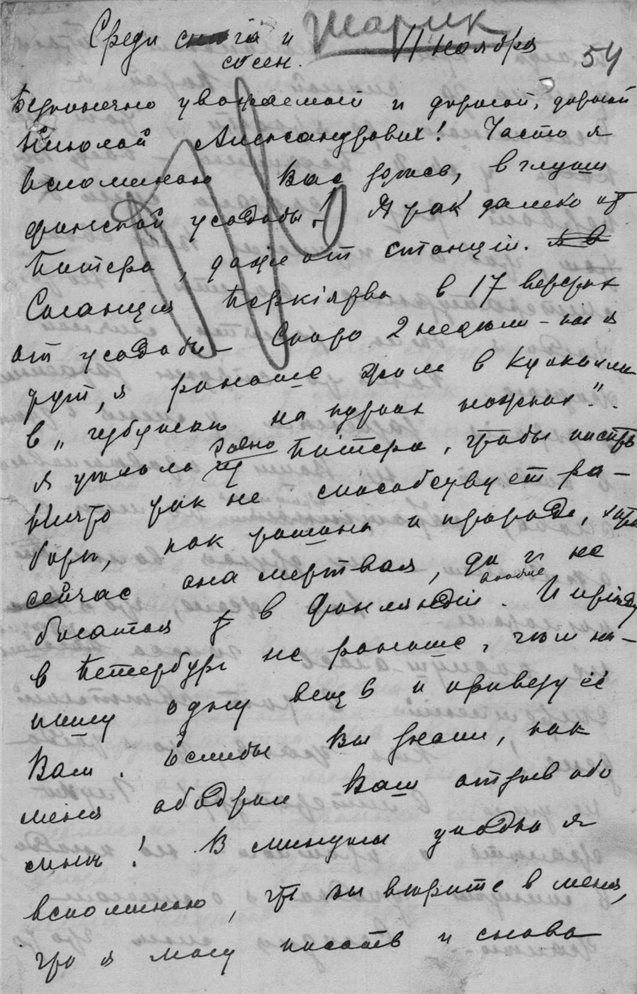 Жарик
54
Среди снѣга и
сосен. 11 ноября
Безконечно уважаемый и дорогой, дорогой
Николай Александрович! Часто я
вспоминаю Вас здѣсь, в глуши
финской усадьбы! Я так далеко от
Питера, даже от станціи.
Станція Перкіярви в 17 верстах
от усадьбы. Скоро 2 недѣли – как я
тут, я раньше жила в Куоккала
в „ на курьих ножках".
Я уѣхала из Питера, чтобы писать
Ничто так не способствует ра-
боты, как тишина и природа, хотя
сейчас она мертвая, да и не
богатая вообще в Финляндіи. И пріѣду
в Петербург не раньше, чѣм на-
пишу одну вещь и привезу её
Вам. Еслибы Вы знали, как
меня ободрил Ваш отзыв обо
мнѣ! В минуты упадка я
вспоминаю, что вы вѣрите в меня,
что я могу писать и снова